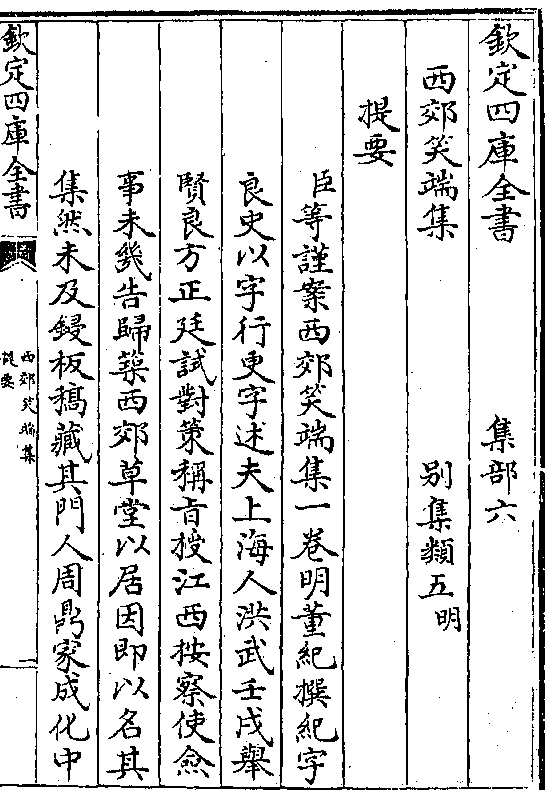 欽定四庫全書 集部六
西郊笑端集 别集類五明
提要
臣等謹案西郊笑端集一卷明董紀撰紀字
良史以字行更字述夫上海人洪武壬戌舉
賢良方正廷試對策稱旨授江西按察使僉
事未幾告歸築西郊草堂以居因即以名其
集然未及鋟板稿藏其門人周鼎家成化中
欽定四庫全書
西郊笑端集
提要
一